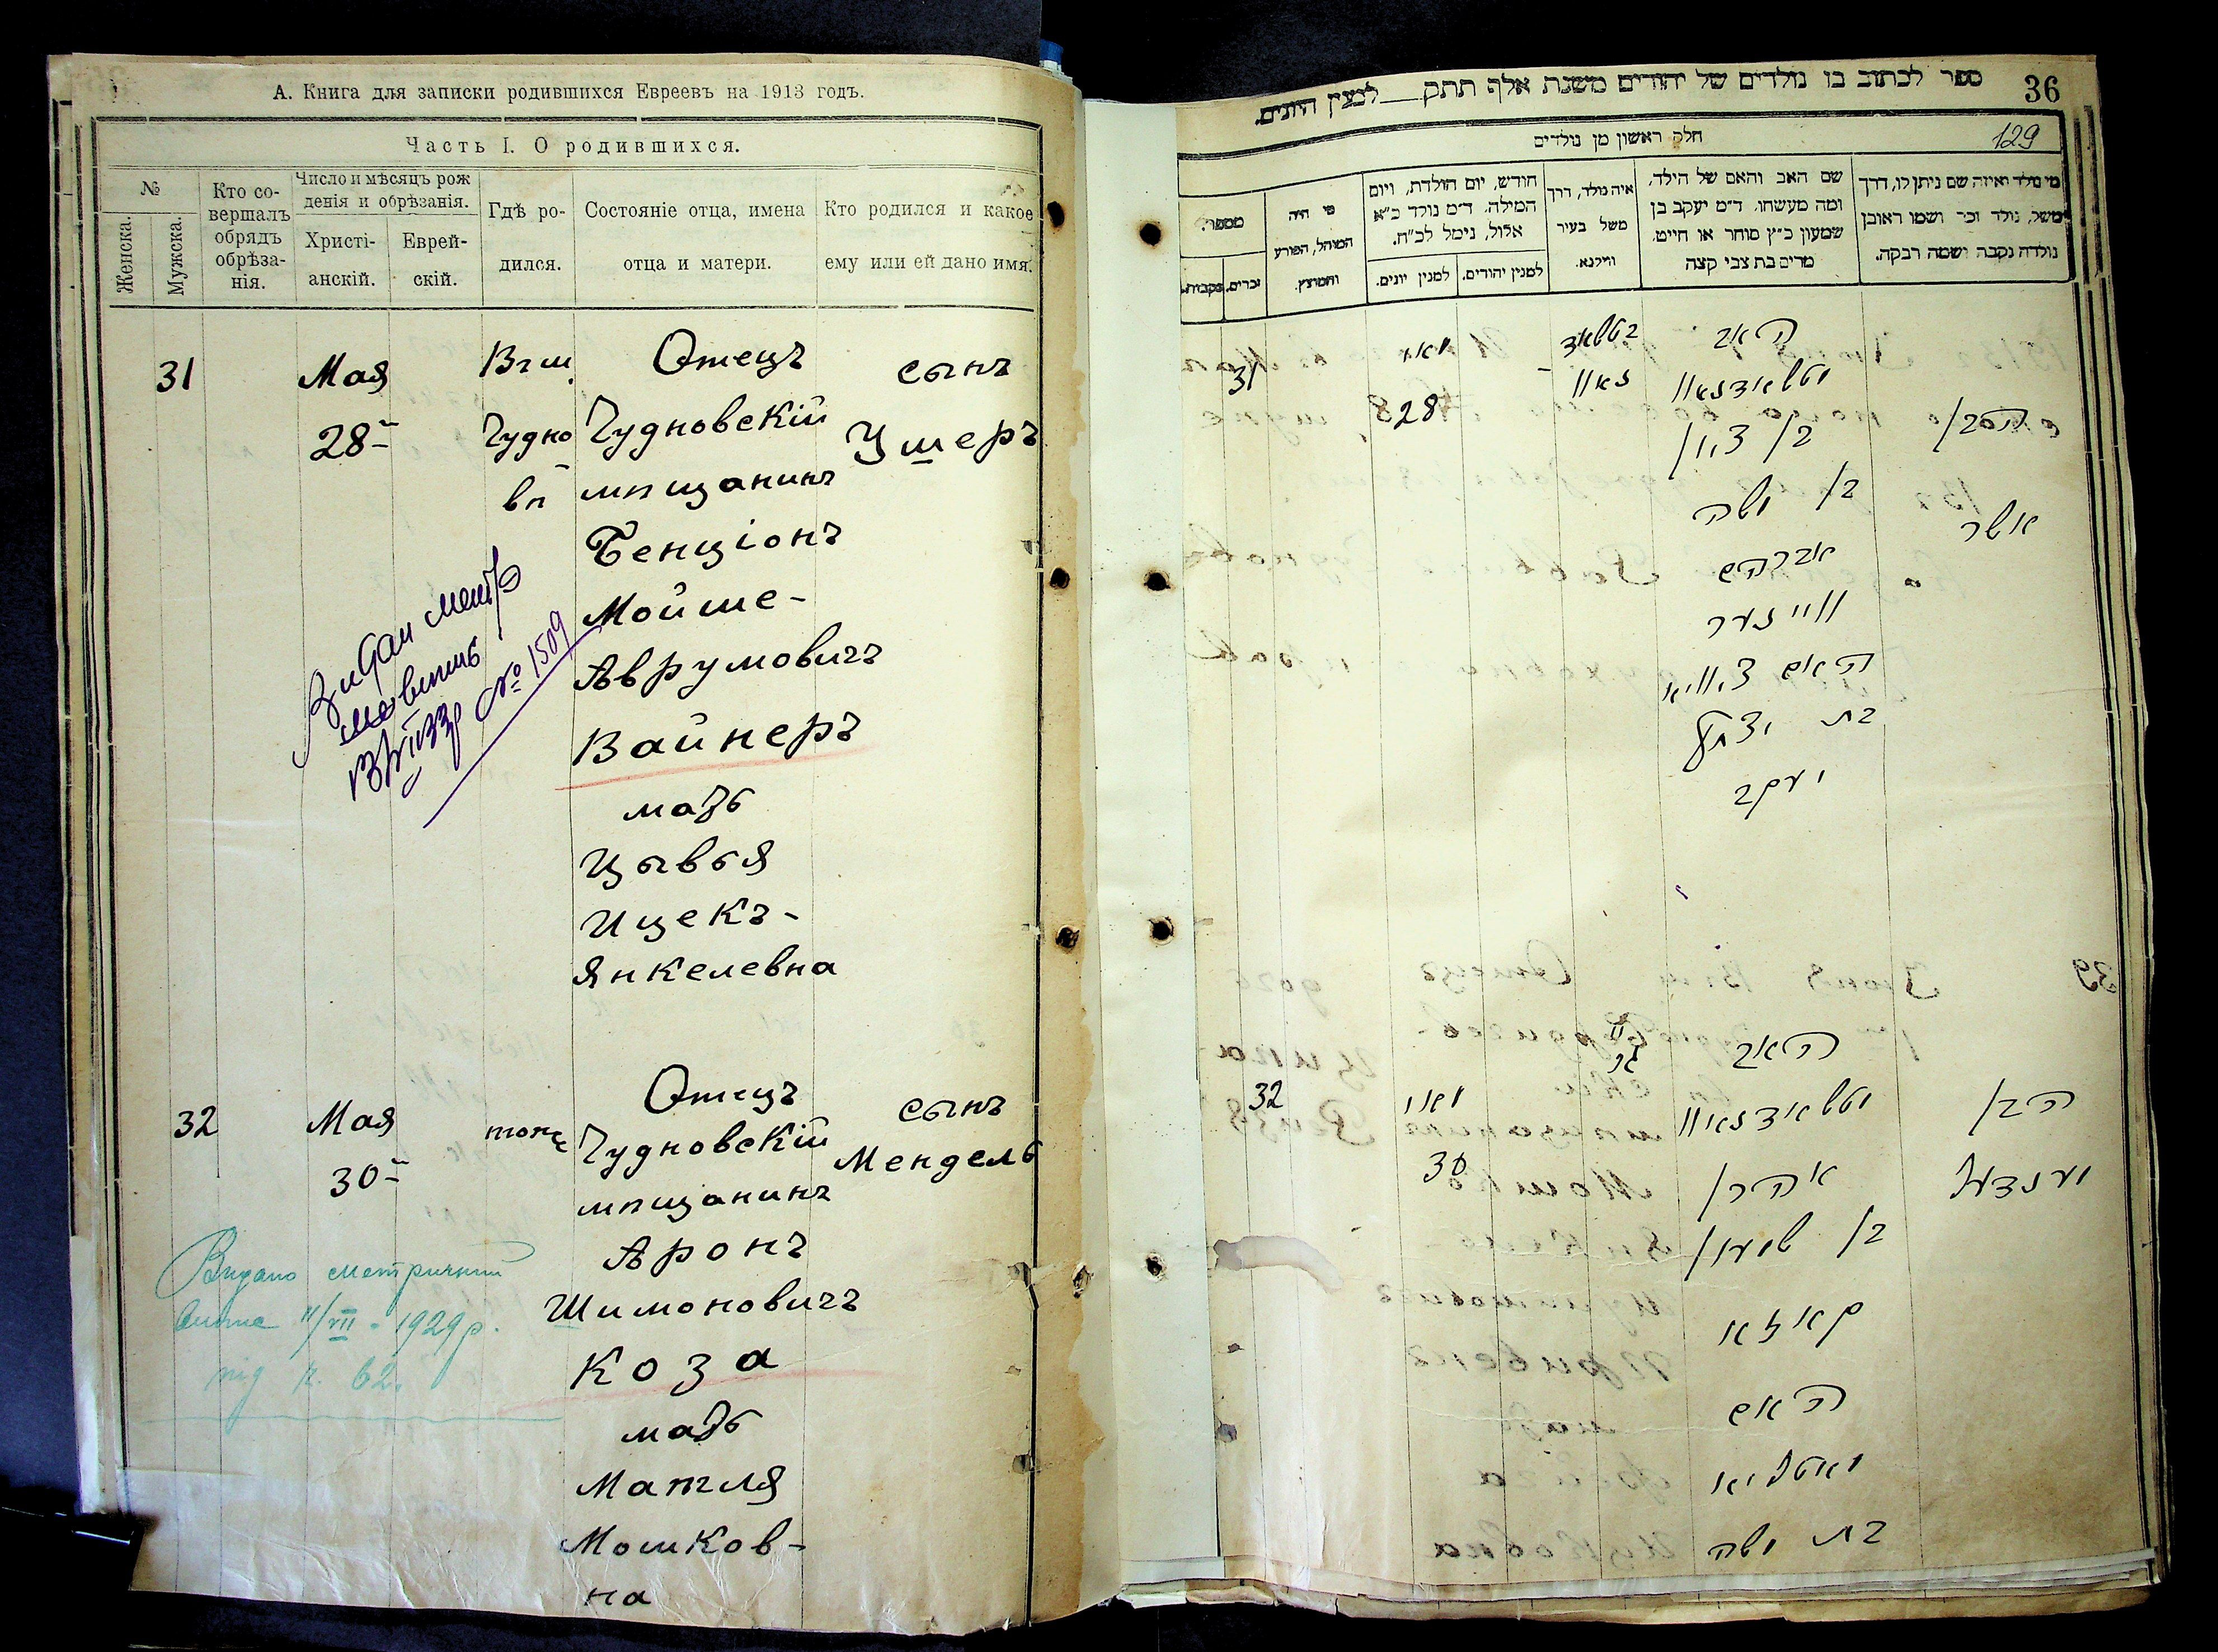 А. Книга для записки родившихся Евреевъ на 1913 годъ.
Часть I. О родившихся.
№
Женска.
Мужска.
Кто со-
вершалъ
обрядъ
обрѣза-
нія.
Число и мѣсяцъ рож
денія и обрѣзанія.
Христі-
анскій.
Еврей-
скій.
Гдѣ ро-
дился.
Состояніе отца, имена
отца и матери.
Кто родился и какое
ему или ей дано имя.
31
Мая
28
В г м.
Чудно
вѣ
Отецъ
Чудновскій
мѣщанинъ
Бенціонъ
Мойше-
Аврумовичъ
Вайнеръ
мать
Цывья
Ицекъ-
Янкелевна
сынъ
Ушеръ
№ 1509
32
Мая
30
тоже
Отецъ
Чудновскій
мѣщанинъ
Аронъ
Шимоновичъ
Коза
мать
Матля
Мошков-
на
сынъ
Мендель
Видано метричний
11/VII - 1929 р.
під н. 62.
36
ספר לכתוב בו נולדים של יהודים משנת אלף תתק למנין היונים.
129
חלק ראשון מן נולדים
מי נולד ואיזה שם ניתן לו, דרך
משל, נולד זכר ושמו ראובן
נולדה נקבה ושמה רבקה.
שם האב והאם של הילד,
ומה מעשהו. ד״מ יעקב בן
שמעון כ״ץ סוחר או חייט.
מרים בת צבי קצה
איה נולד, דרך
משל בעיר
ווילנא.
חודש, יום הולדת, ויום
המילה. ד״מ נולד כ״א
אלול, נימל לכ״ח.
למנין יהודים.
למנין יונים.
מי היה
המוהל, הפורע
והמוצץ.
מספר.
זכרים.
נקבות.
הבן
אשר
האב
בן ציון
בן משה
אברהם
ווײנער
האם ציוויא
בת יצחק
יעקב
מאי
28
31
הבן
מענדעל
האב
אהרן
בן שמעון
קאזא
האם
מאטליא
בת משה
מאי
30
32